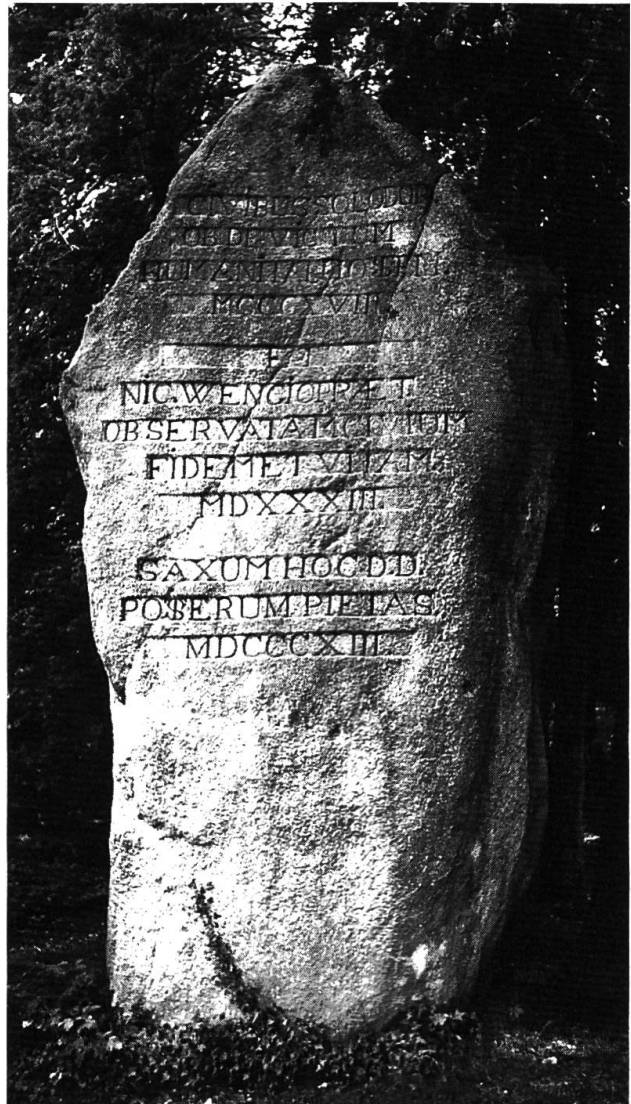 CIVIBUS SOLODOR.
OB DEVICTUM
HUMANITATE HOSTEM.
MCCCXVIII.
ET
NIC. WENGIO PRÆT.
OB SERVATAM CIVIUM
FIDEM ET VITAM.
MDXXXIII.
SAXUM HOC D.D.
POSTERUM PIETAS
MDCCCXIII.